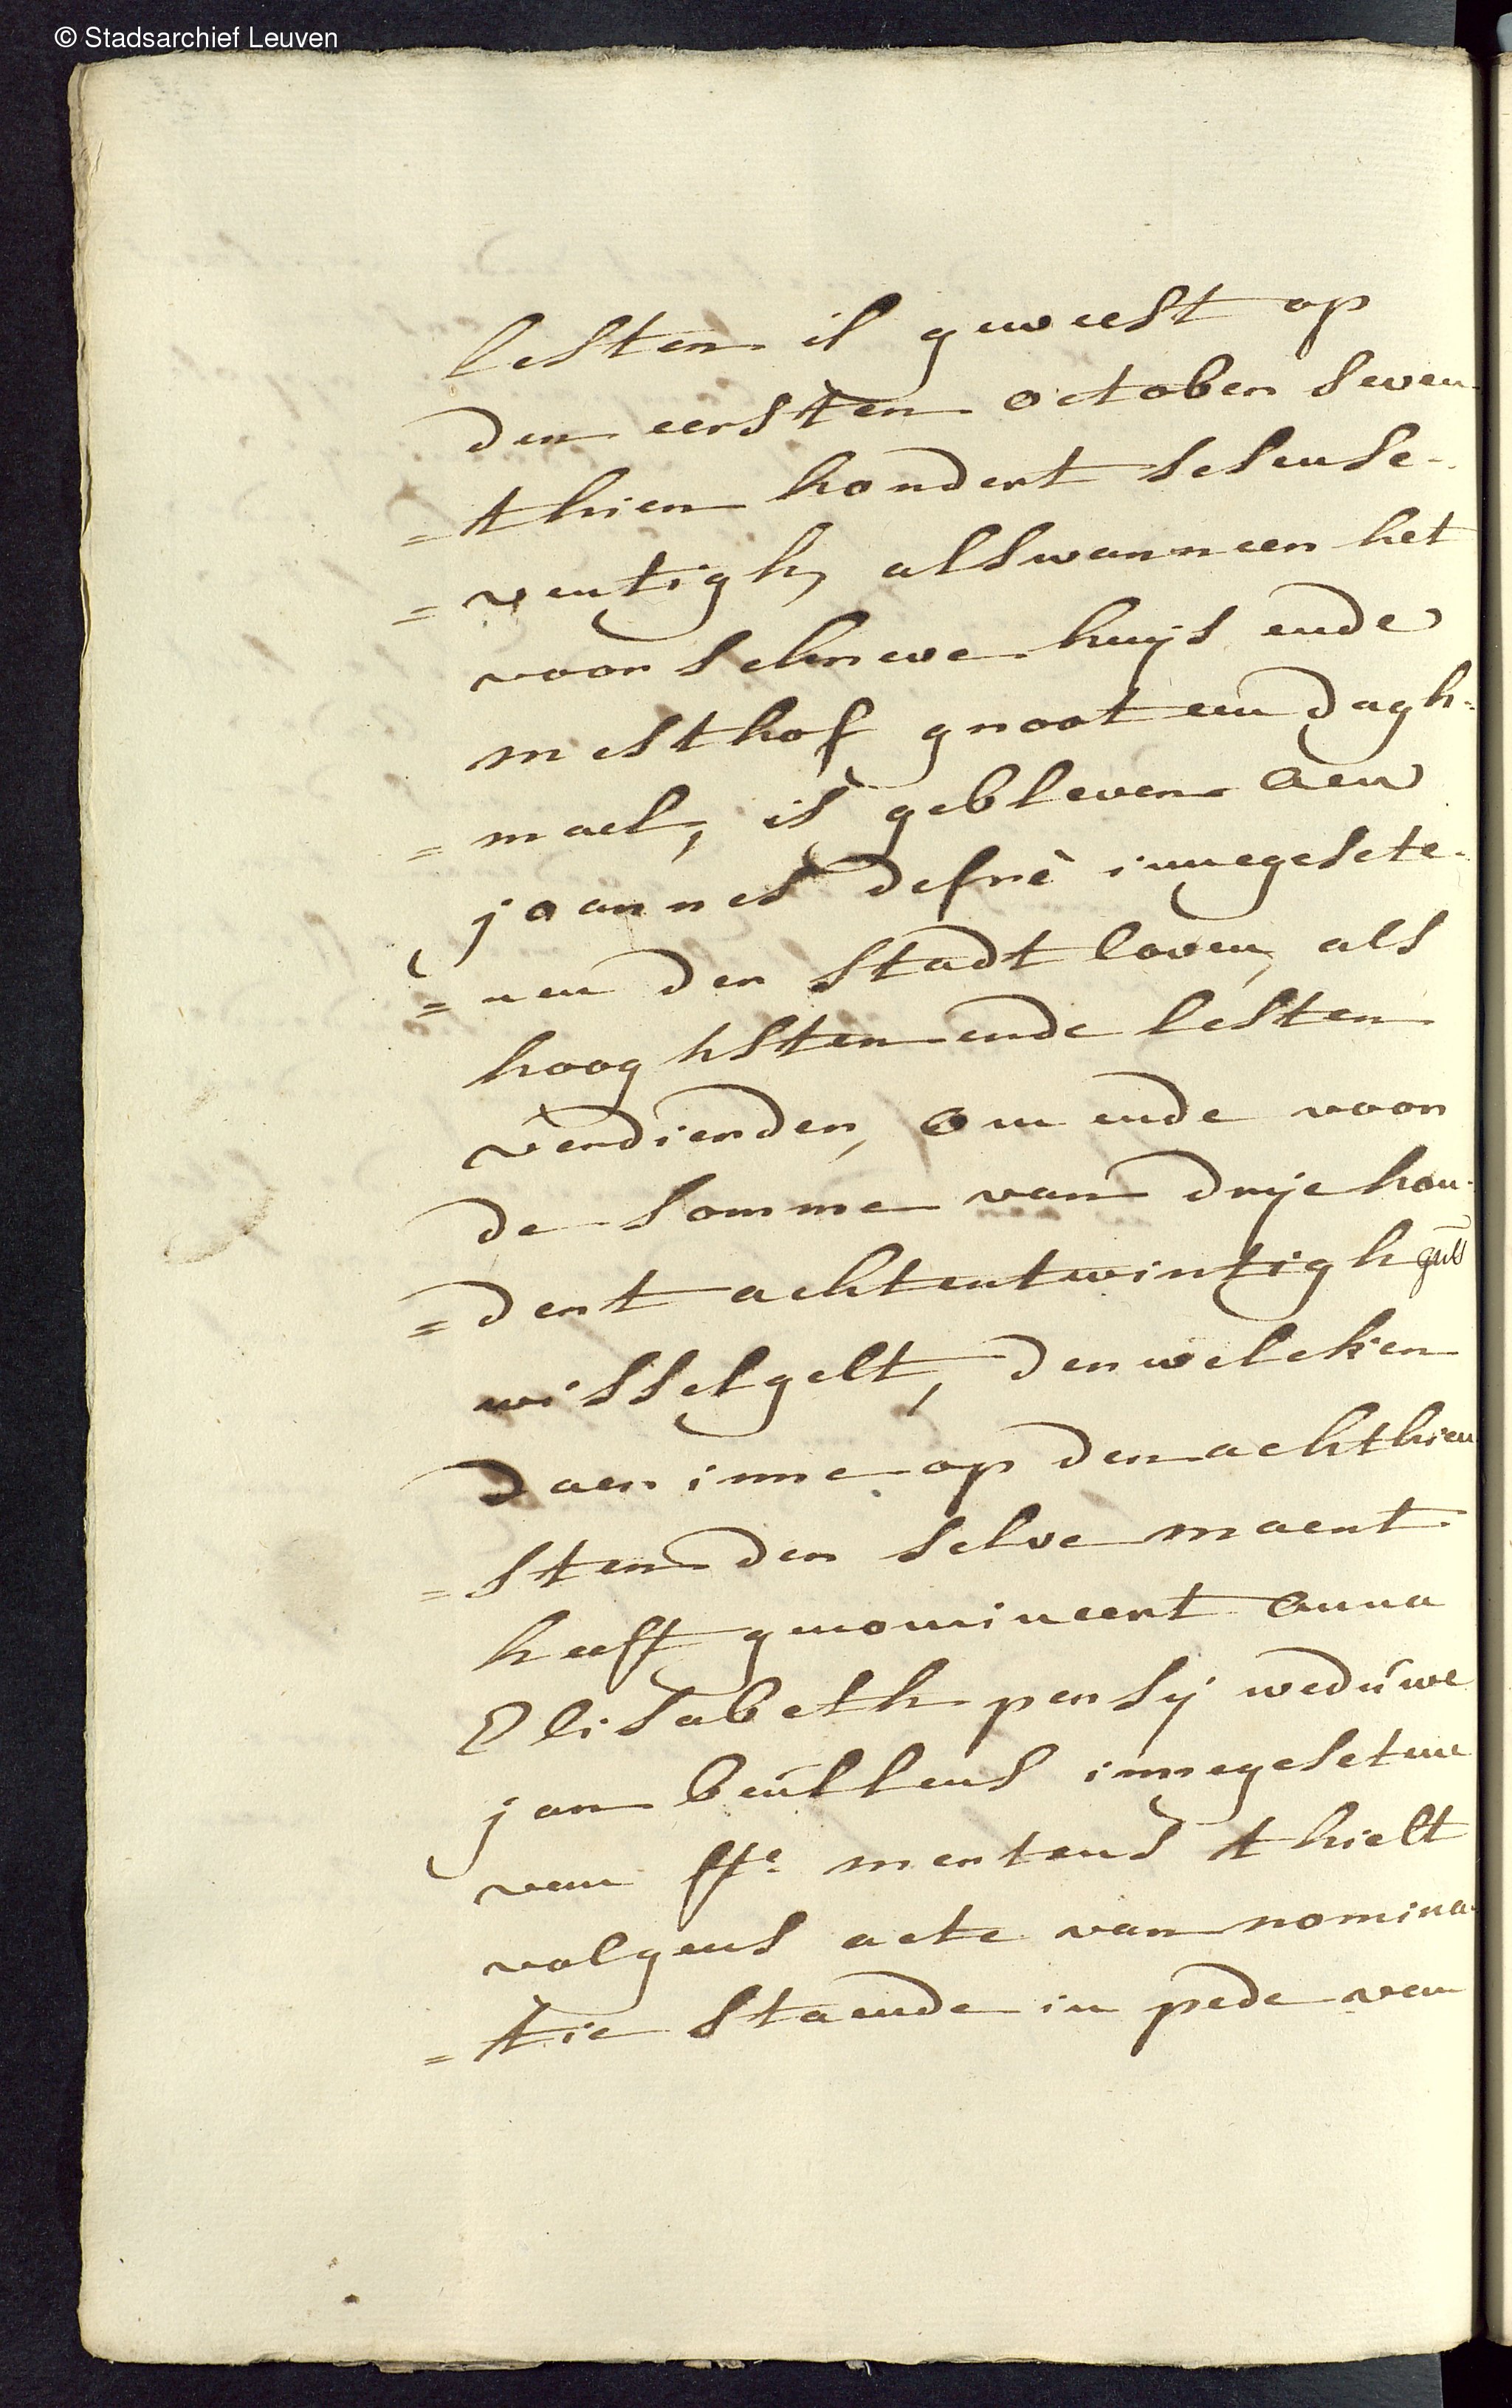 © Stadsarchief Leuven
lesten is geweest op
den eersten october seven
= thien hondert sesense-
= ventigh, alswanneer het
voorschreve huijs ende
mesthof groot een dagh=
= mael, is gebleven aen
joannes defrè innegesete-
= nen der stadt loven, als
hooghsten ende lesten
verdierder, om ende voor
de somme van drije hon-
= dert achtentwintigh guls
wisselgelt, denwelcken
daer inne op den achthien
= sten der selve maent
heeft genomineert anna
Elisabeth persij weduwe
jan beullens innegesetene
van ste mertens thielt
volgens acte van nomina-
= tie staende in pede van